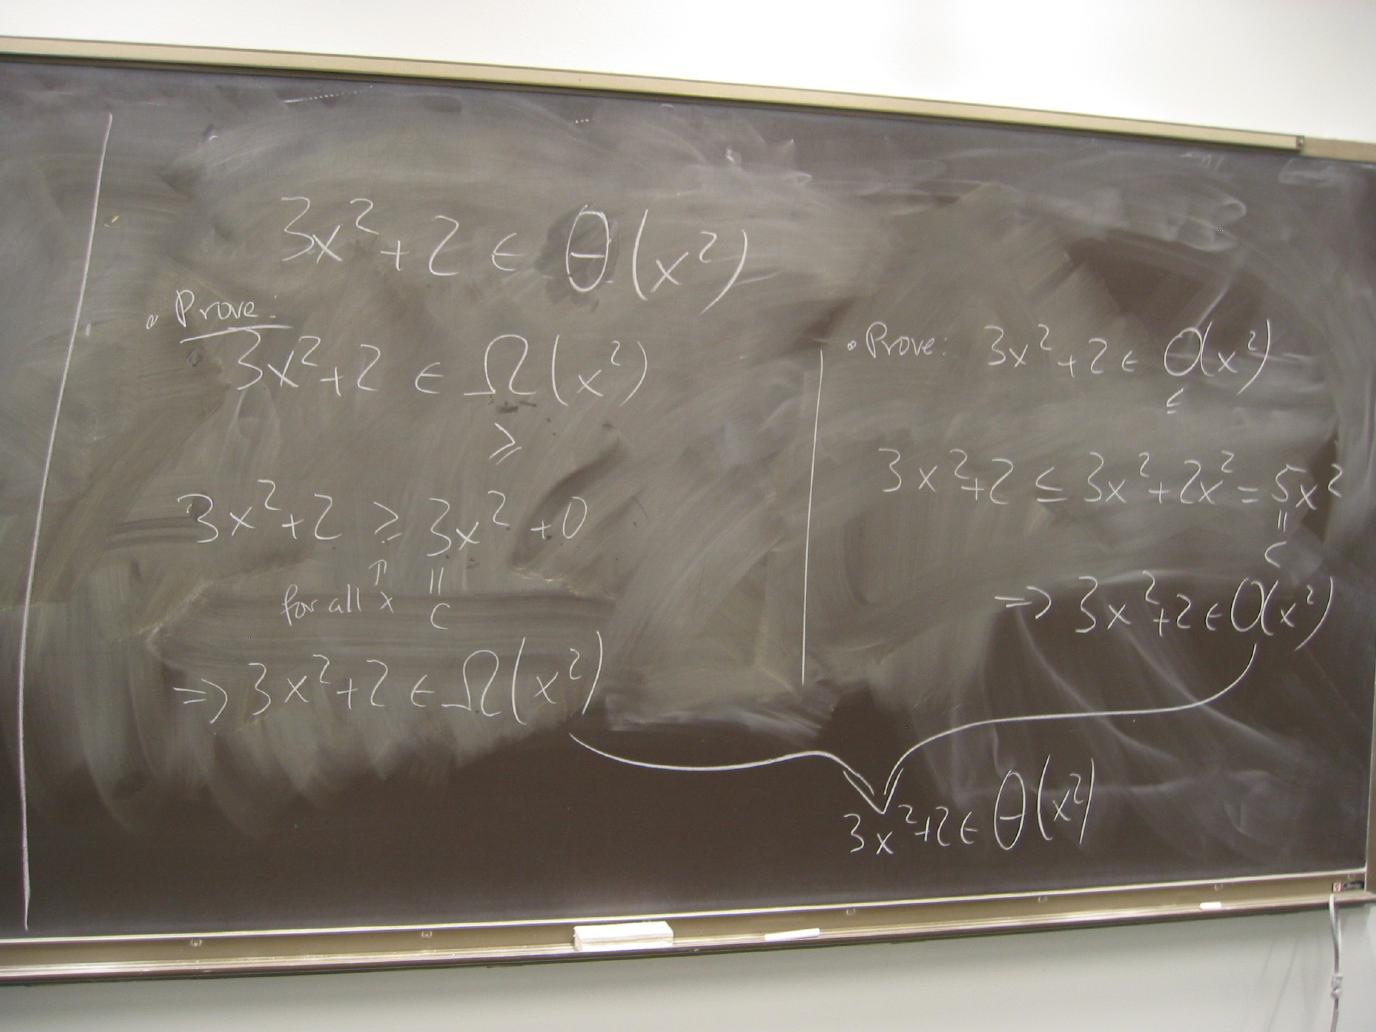 3x²+2 ∈ θ(x²)
• Prove:
3x²+2 ∈ Ω(x²)
≥
3x²+2 ≥ 3x²+0
↑ ॥
for all x C
⇒ 3x²+2 ∈ Ω(x²)
• Prove: 3x²+2 ∈ O(x²)
≤
3x²+2 ≤ 3x²+2x² = 5x²
॥
C
⇒ 3x²+2 ∈ O(x²)
3x²+2 ∈ θ(x²)